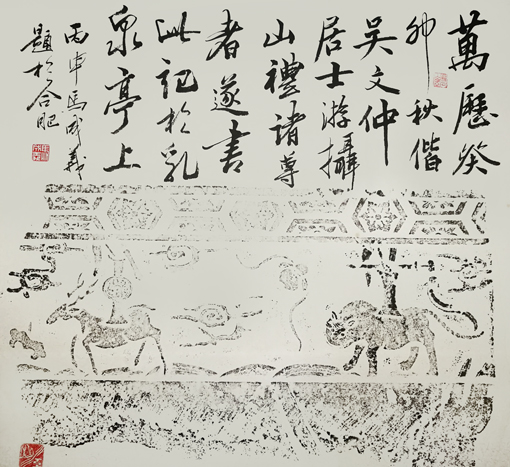 萬歷癸
卯秋偕
吴文仲
居士游攝
山禮諸尊
者遂書
此記於乳
泉亭上
丙申馬成義
題於合肥